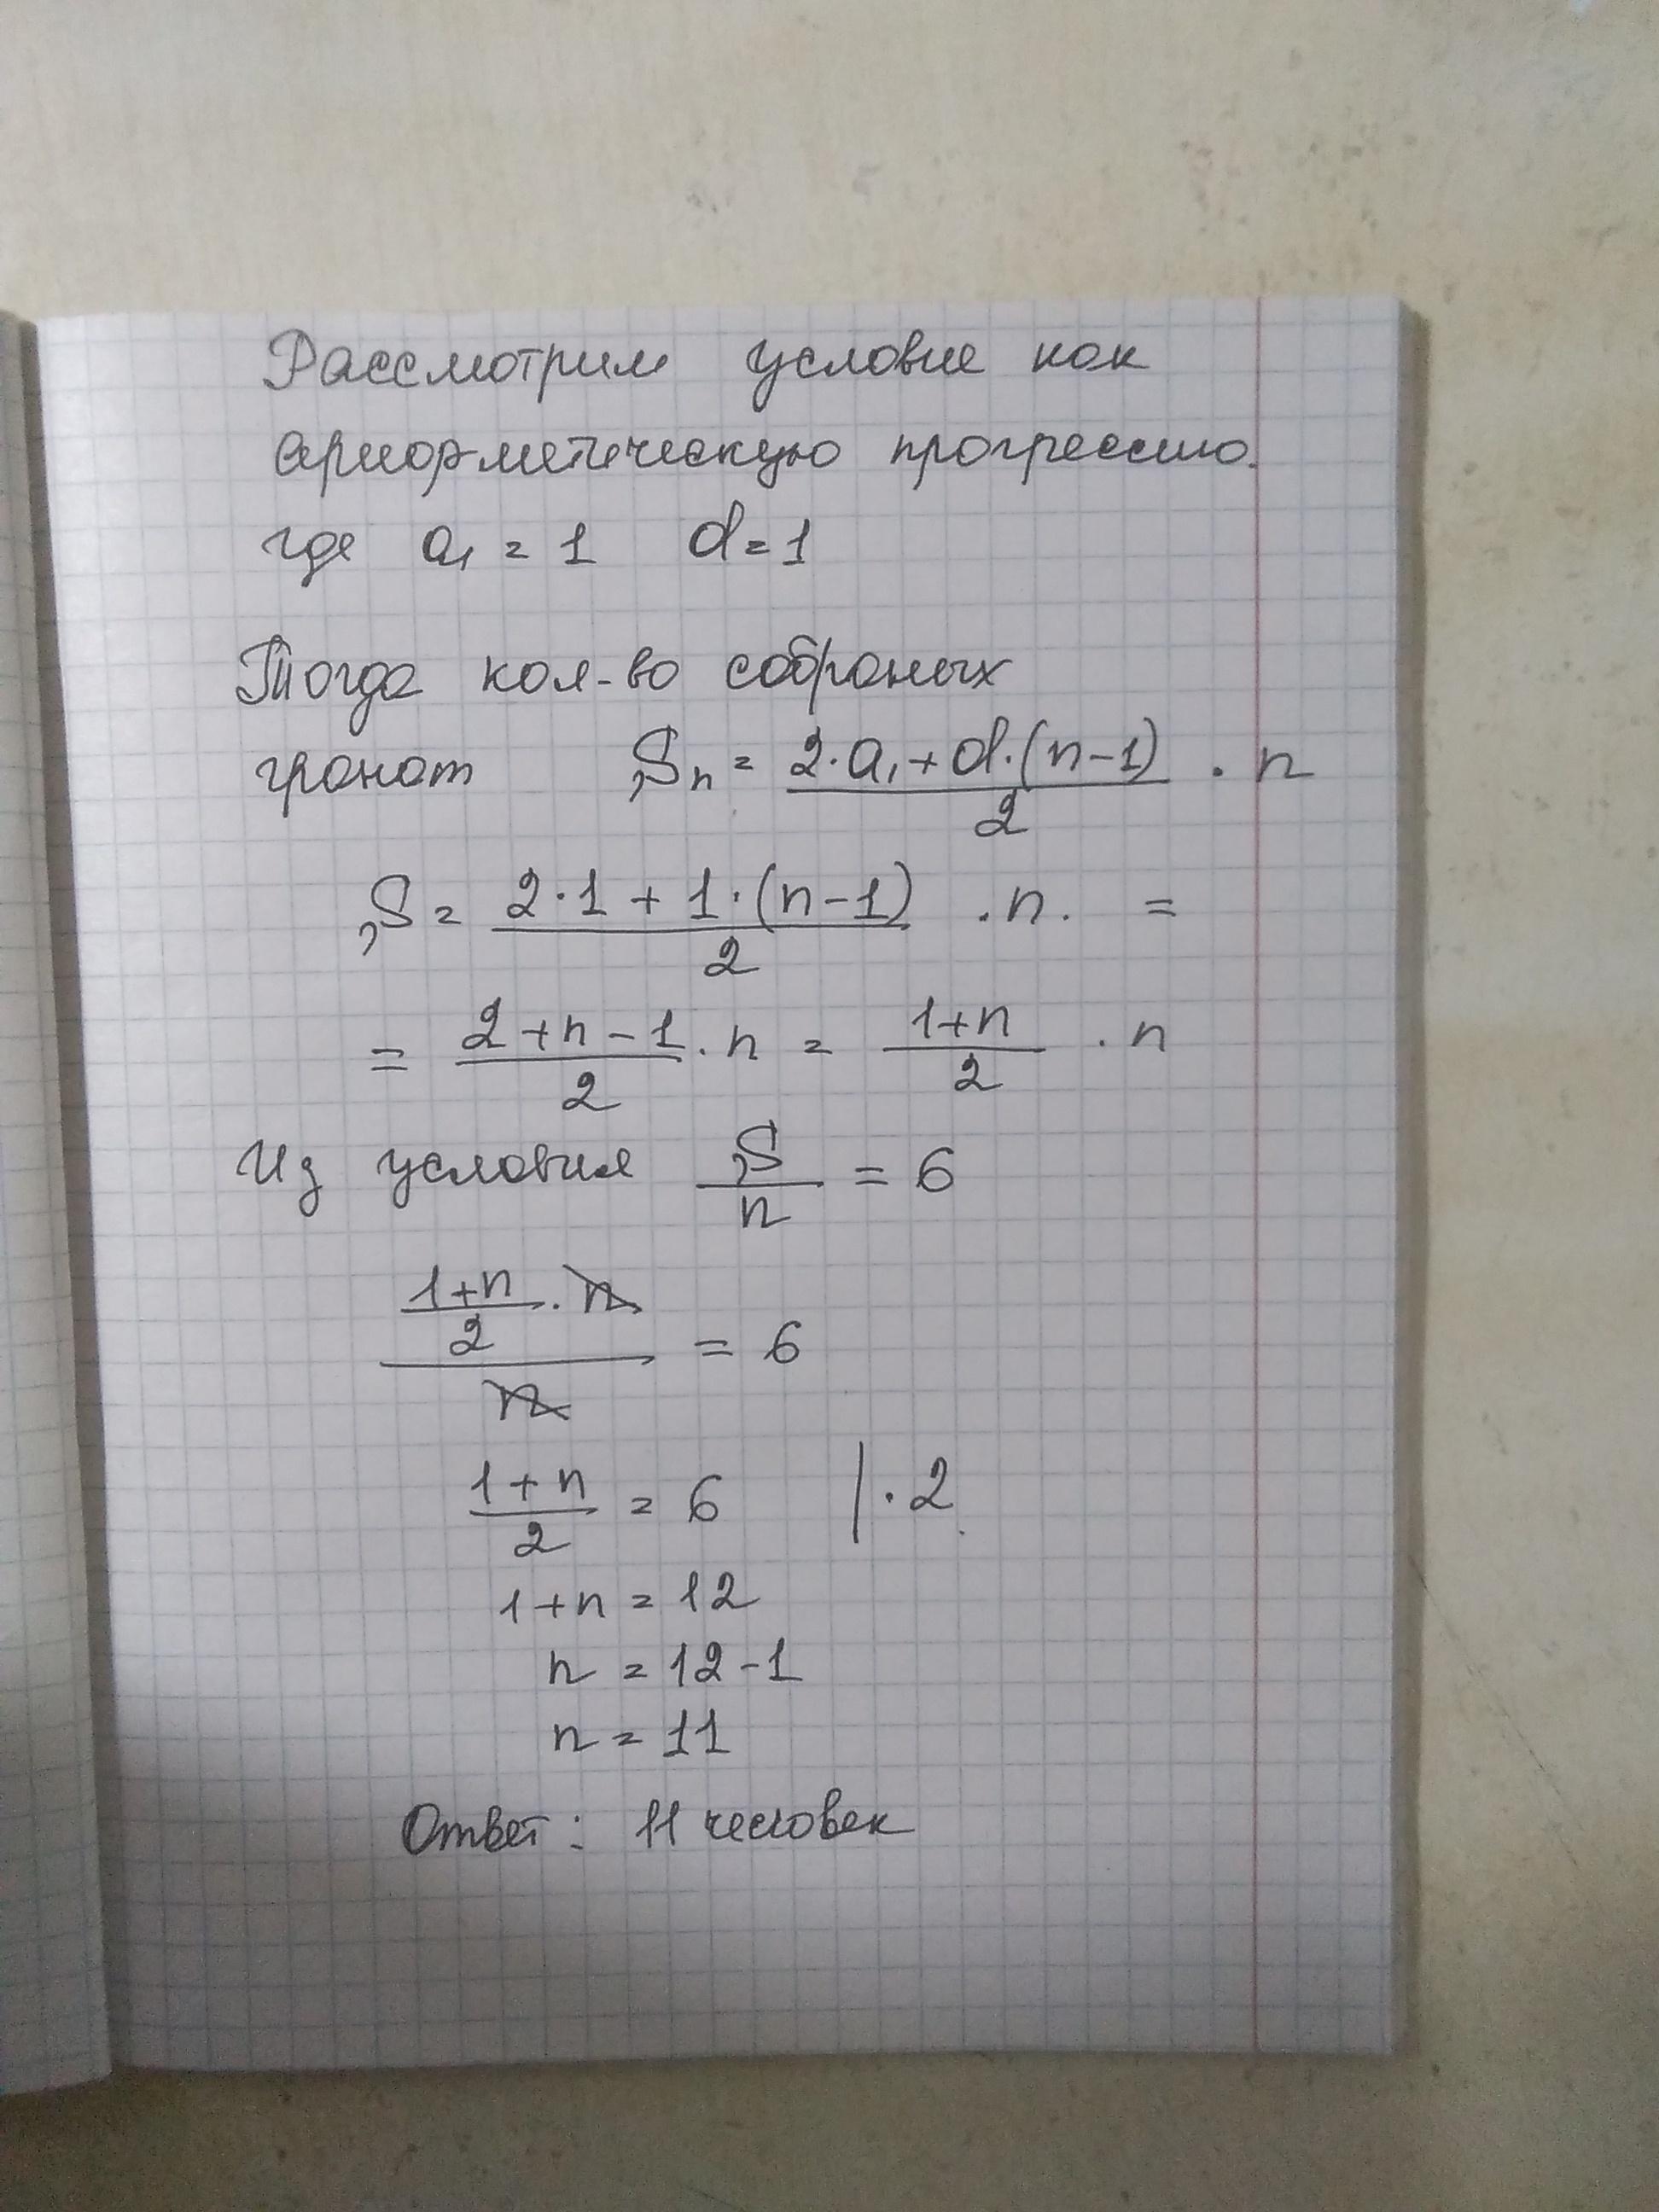 Рассмотрим условие как
арифметическую прогрессию.
где a₁ = 1 d = 1
Тогда кол-во собраных
гранат Sₙ = (2·a₁ + d·(n-1))/2 · n
S = (2·1 + 1·(n-1))/2 · n. =
= (2+n-1)/2 · n = (1+n)/2 · n
Из условия S/n = 6
((1+n)/2 · n)/n = 6
(1+n)/2 = 6 | · 2
1+n = 12
n = 12-1
n = 11
Ответ: 11 человек